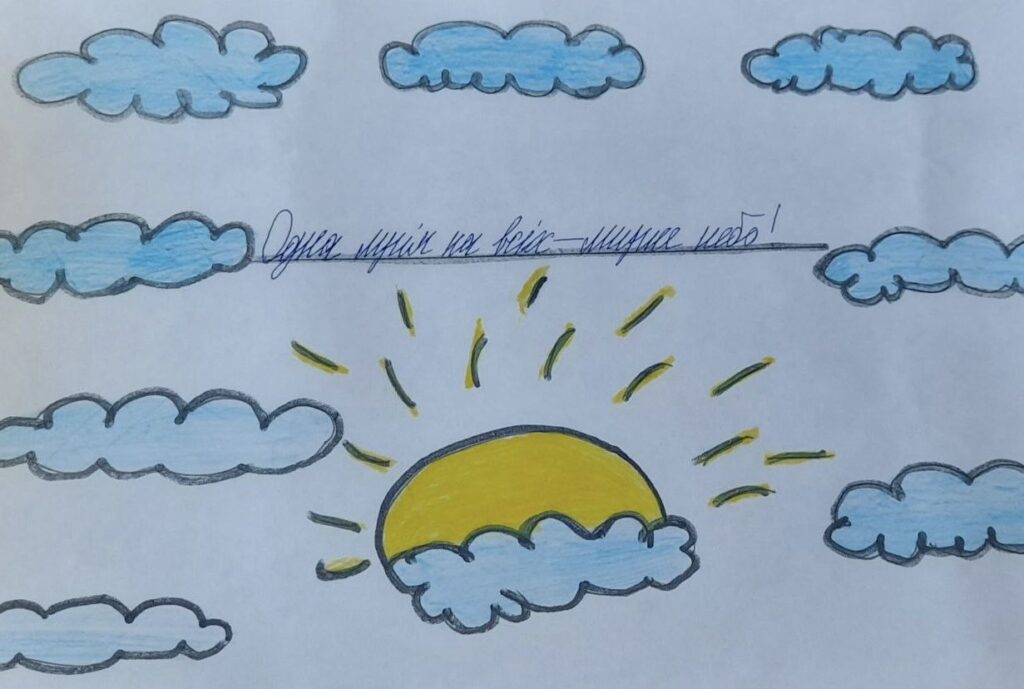 Одна мрія на всіх – мирне небо!